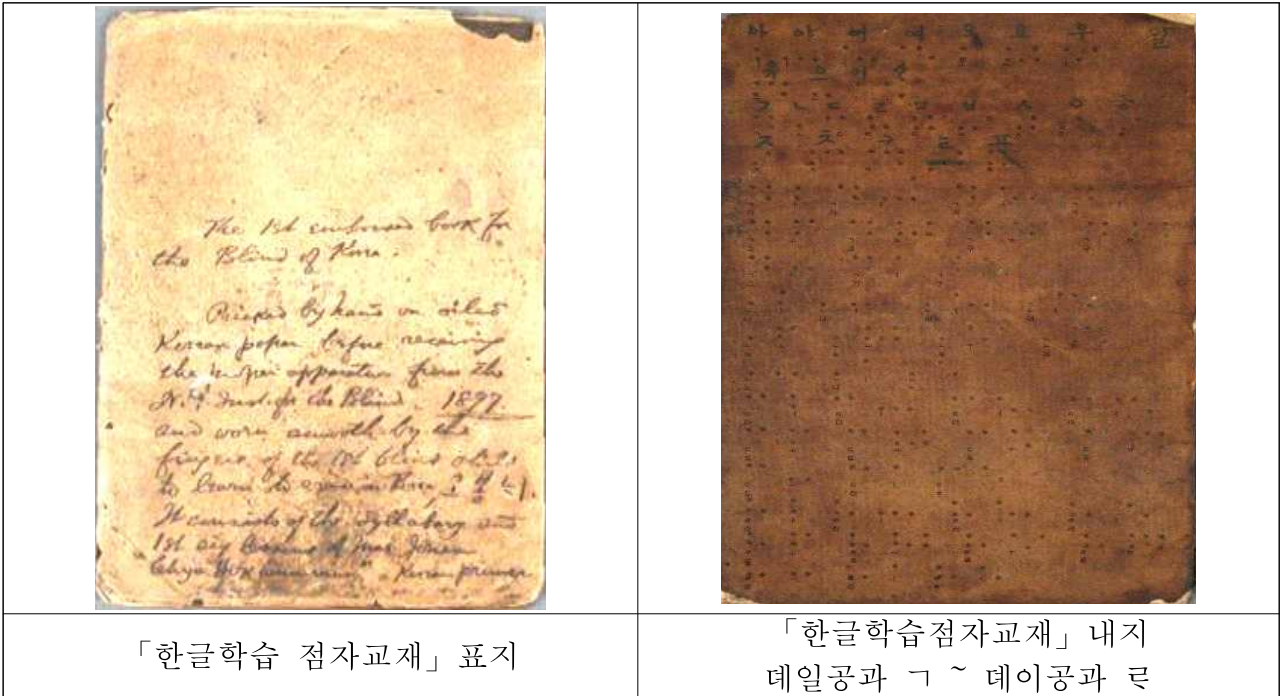 The 1st embossed book for
the Blind of Korea.
Pricked by hand on oiled
Korean paper before receiving
the proper apparatus from the
N.Y. Inst. for the Blind. 1897
and worn smooth by the
fingers of the 1st blind
to learn to read in Korea
It consists of the Syllabary and
1st Mrs.
Korean primer
아 야 어 여 오 요 우
유 으 이
ㄱ ㄴ ㄷ ㄹ ㅁ ㅂ ㅅ ㅇ ㅎ
ㅈ ㅊ ㅋ ㅌ ㅍ
「한글학습 점자교재」표지
「한글학습점자교재」내지
데일공과 ㄱ ~ 데이공과 ㄹ